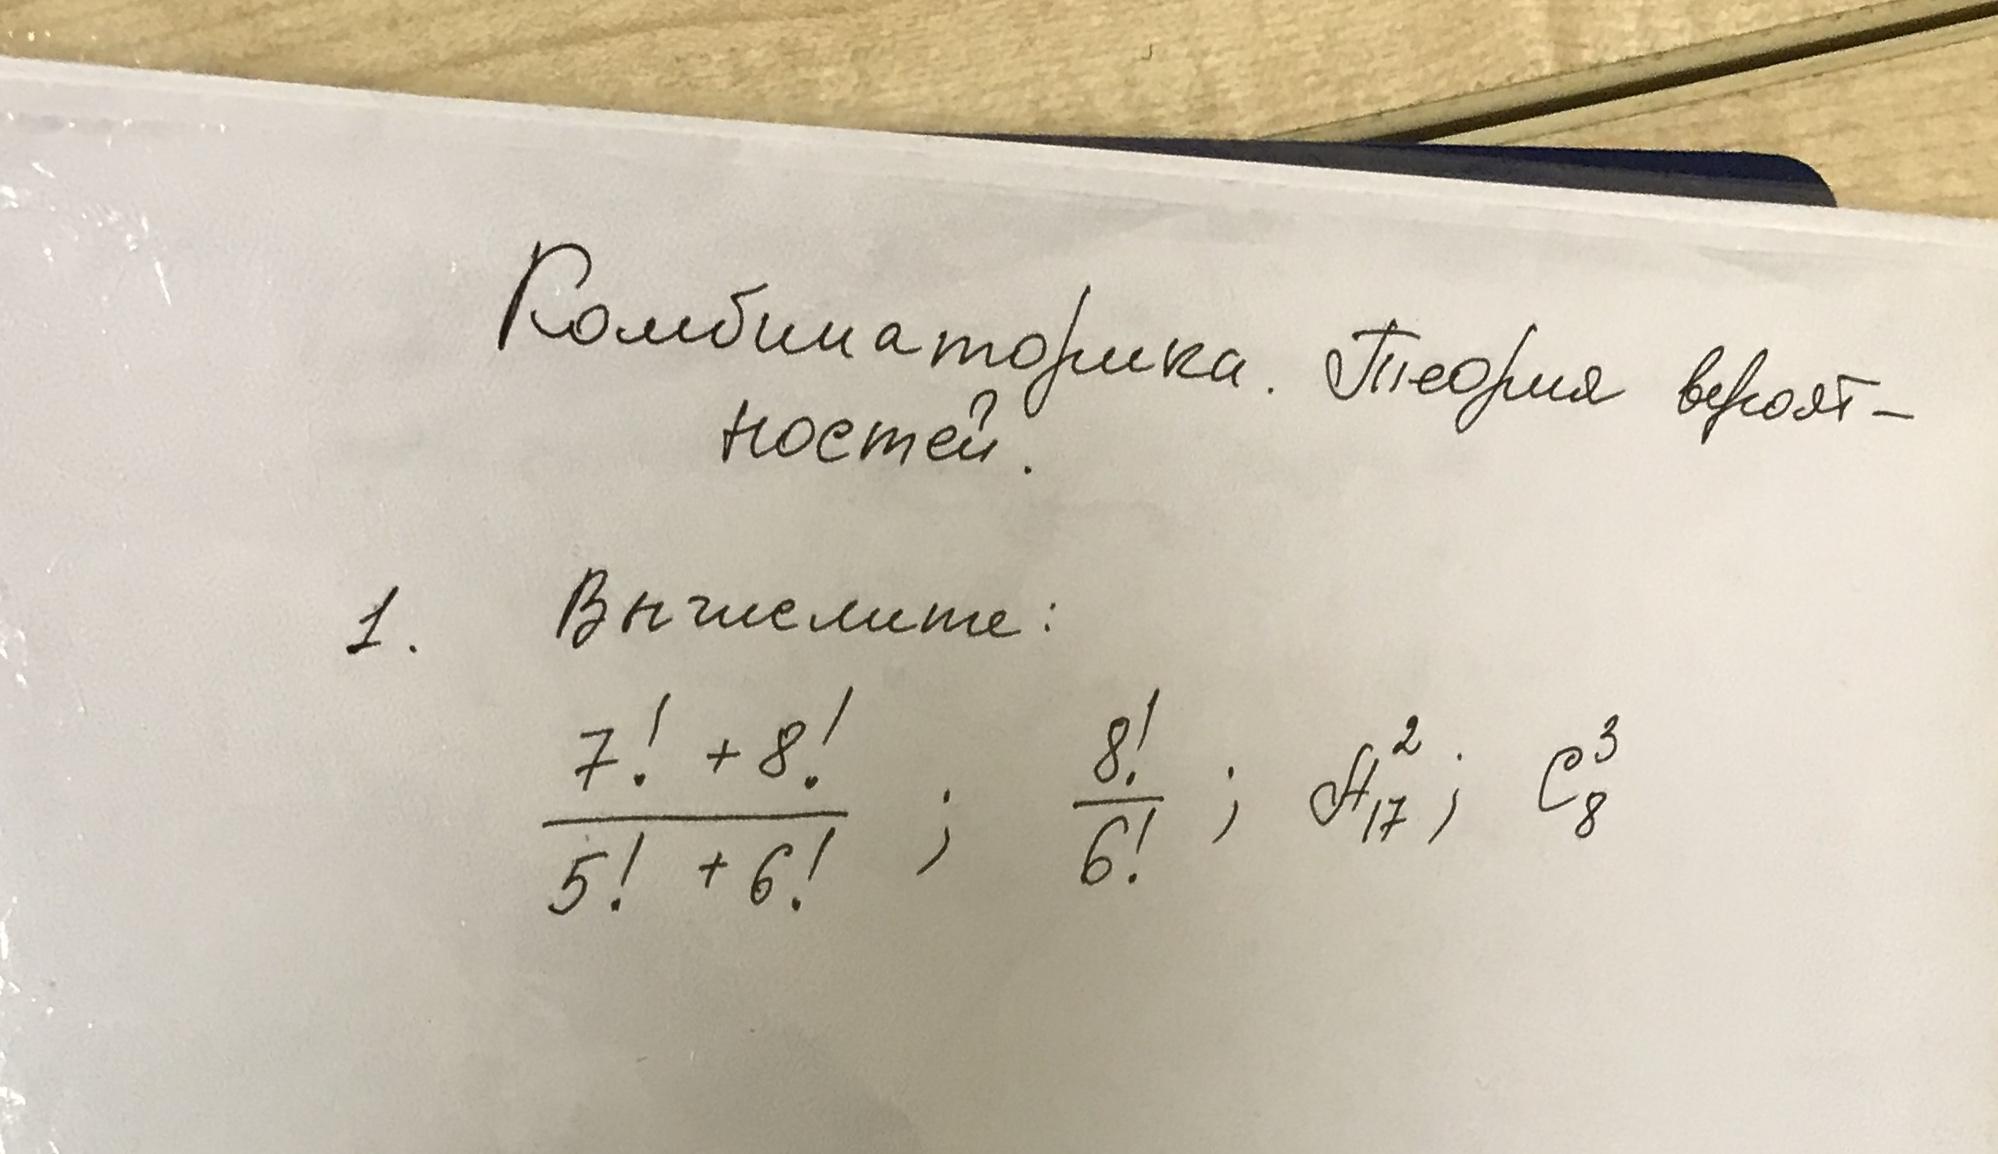 Комбинаторика. Теория вероят-
ностей.
1. Вычислите:
7! + 8! / 5! + 6! ; 8! / 6! ; A²₁₇ ; C³₈